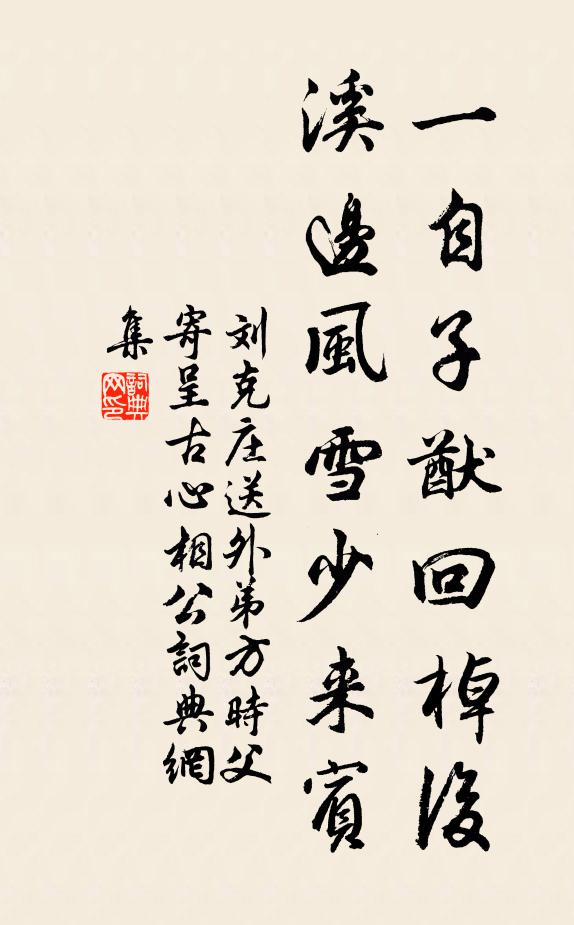 一自子猷回棹後
溪邊風雪少来賓
刘克庄送外弟方時父
寄呈古心相公詞典網
集
詞典
网印